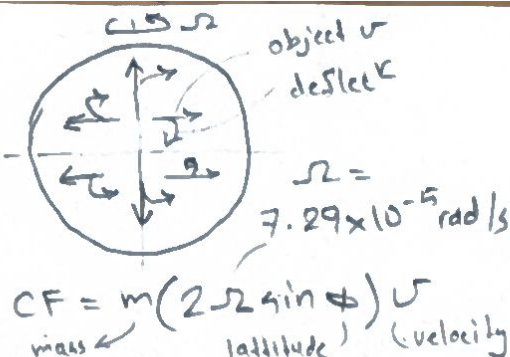 Ω
object v
deflect
Ω =
7.29x10⁻⁵ rad/s
CF = m(2Ω sin φ) v
mass lattitude velocity